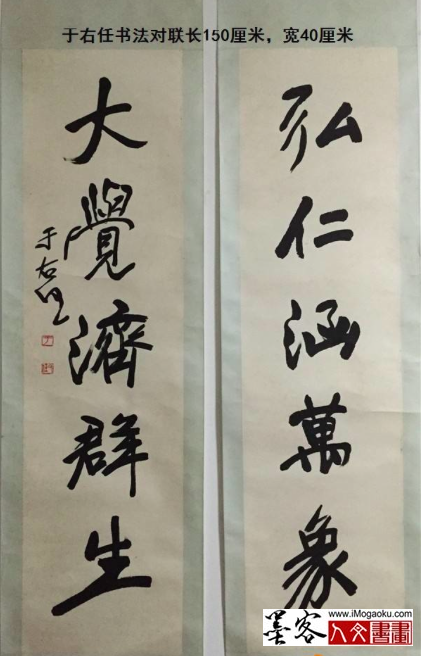 于右任书法对联长150厘米，宽40厘米
弘仁涵萬象
大覺濟群生
于右任
www.iMogaoku.com
墨客人文書畫